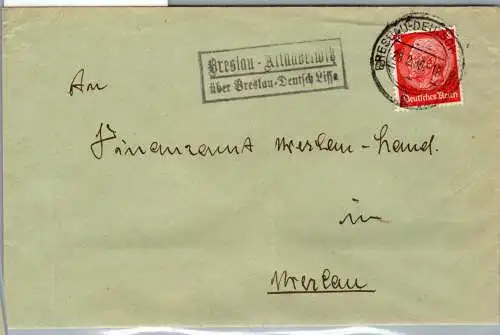 Breslau -
über Breslau-Deutsch Lissa
BRESLAU-DEUTSCH
Deutsches Reich
An
Finanzamt Breslau-Land.
in
Breslau